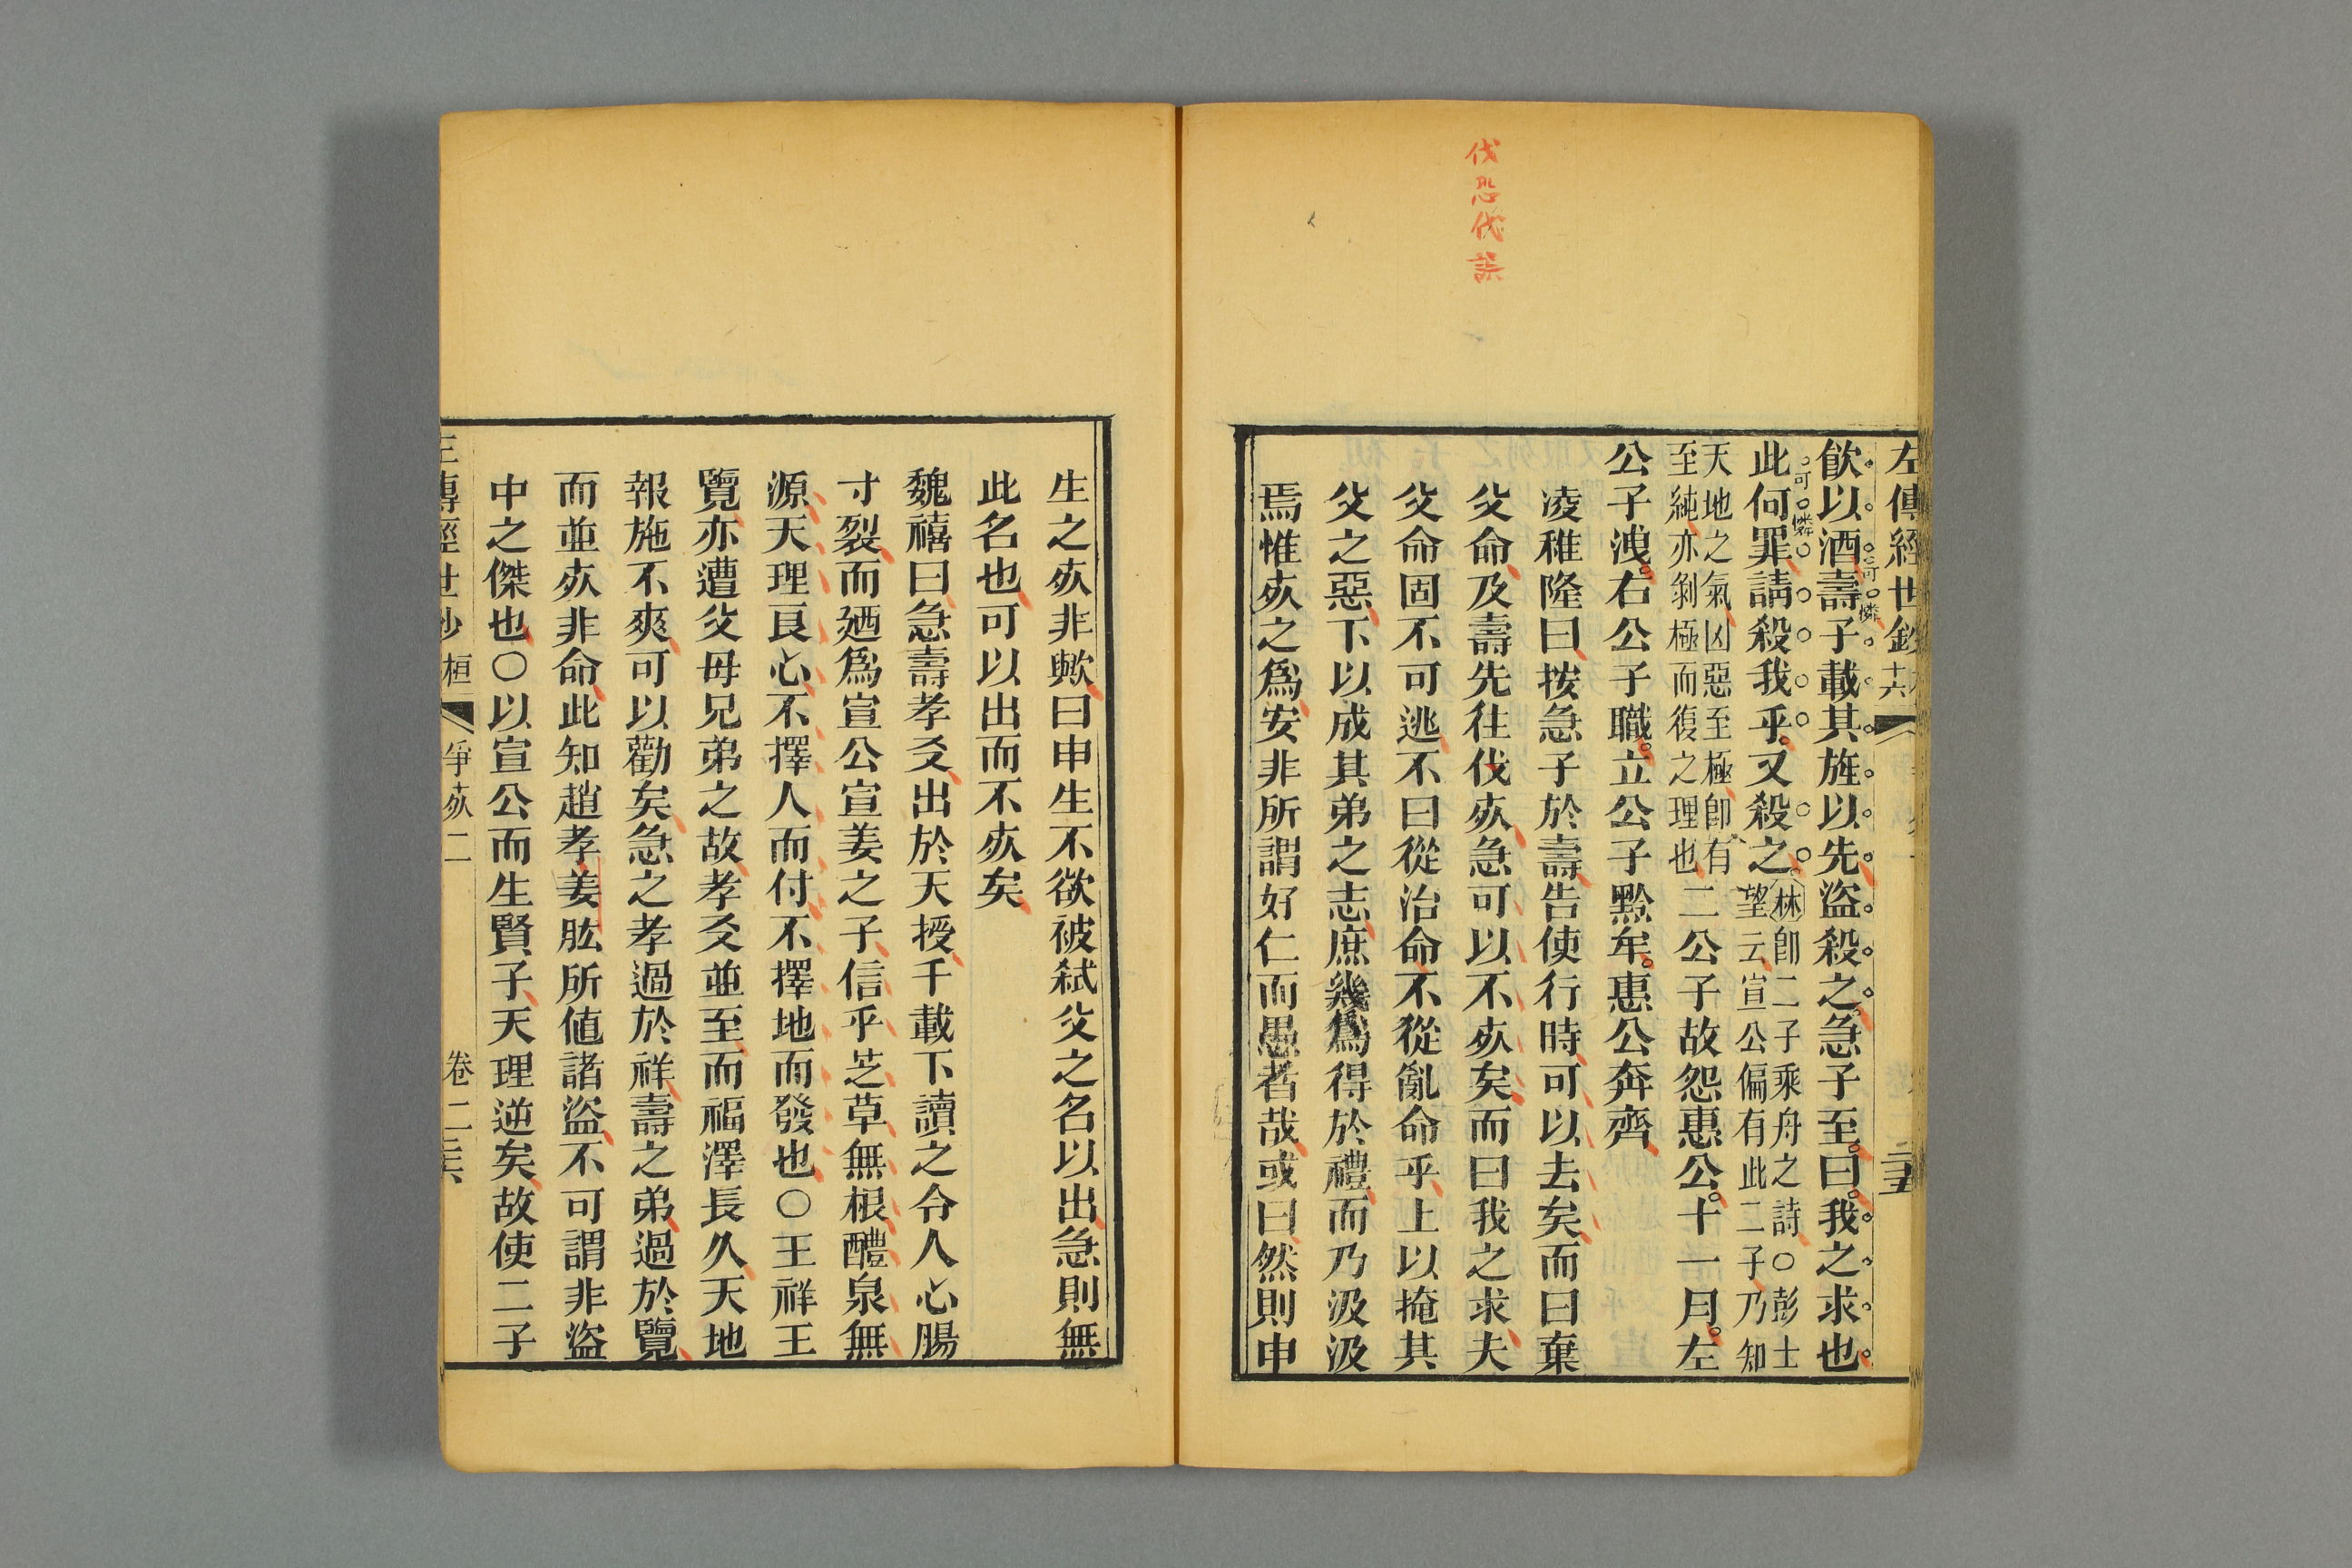 伐恐代誤
左傳經世鈔
十六
二十五
飮以酒壽子載其旌以先盜殺之急子至曰我之求也
可憐
此何罪請殺我乎又殺之林卽二子乘舟之詩○彭士
可憐
望云宣公偏有此二子乃知
天地之氣凶惡至極卽有
至純亦剝極而復之理也二公子故怨惠公十一月左
公子洩右公子職立公子黔牟惠公奔齊
凌稚隆曰按急子於壽告使行時可以去矣而曰棄
父命及壽先往伐死急可以不死矣而曰我之求夫
父命固不可逃不曰從治命不從亂命乎上以掩其
父之惡下以成其弟之志庶幾爲得於禮而乃汲汲
焉惟死之爲安非所謂好仁而愚者哉或曰然則申
生之死非歟曰申生不欲被弒父之名以出急則無
此名也可以出而不死矣
魏禧曰急壽孝友出於天授千載下讀之令人心腸
寸裂而廼爲宣公宣姜之子信乎芝草無根醴泉無
源天理良心不擇人而付不擇地而發也○王祥王
覽亦遭父母兄弟之故孝友並至而福澤長久天地
報施不爽可以勸矣急之孝過於祥壽之弟過於覽
而並死非命此知趙孝姜肱所値諸盜不可謂非盜
中之傑也○以宣公而生賢子天理逆矣故使二子
左傳經世鈔 桓 爭死二 卷二 二十六